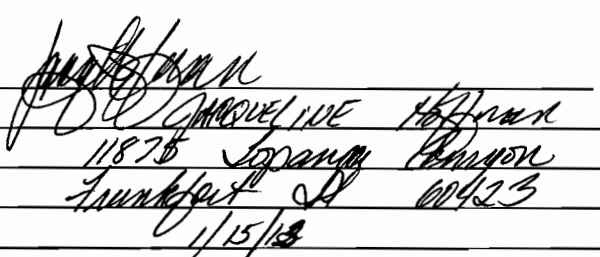 JACQUELINE Hoffman
11875 Topanga Canyon
Frankfort Il 60423
1/15/13